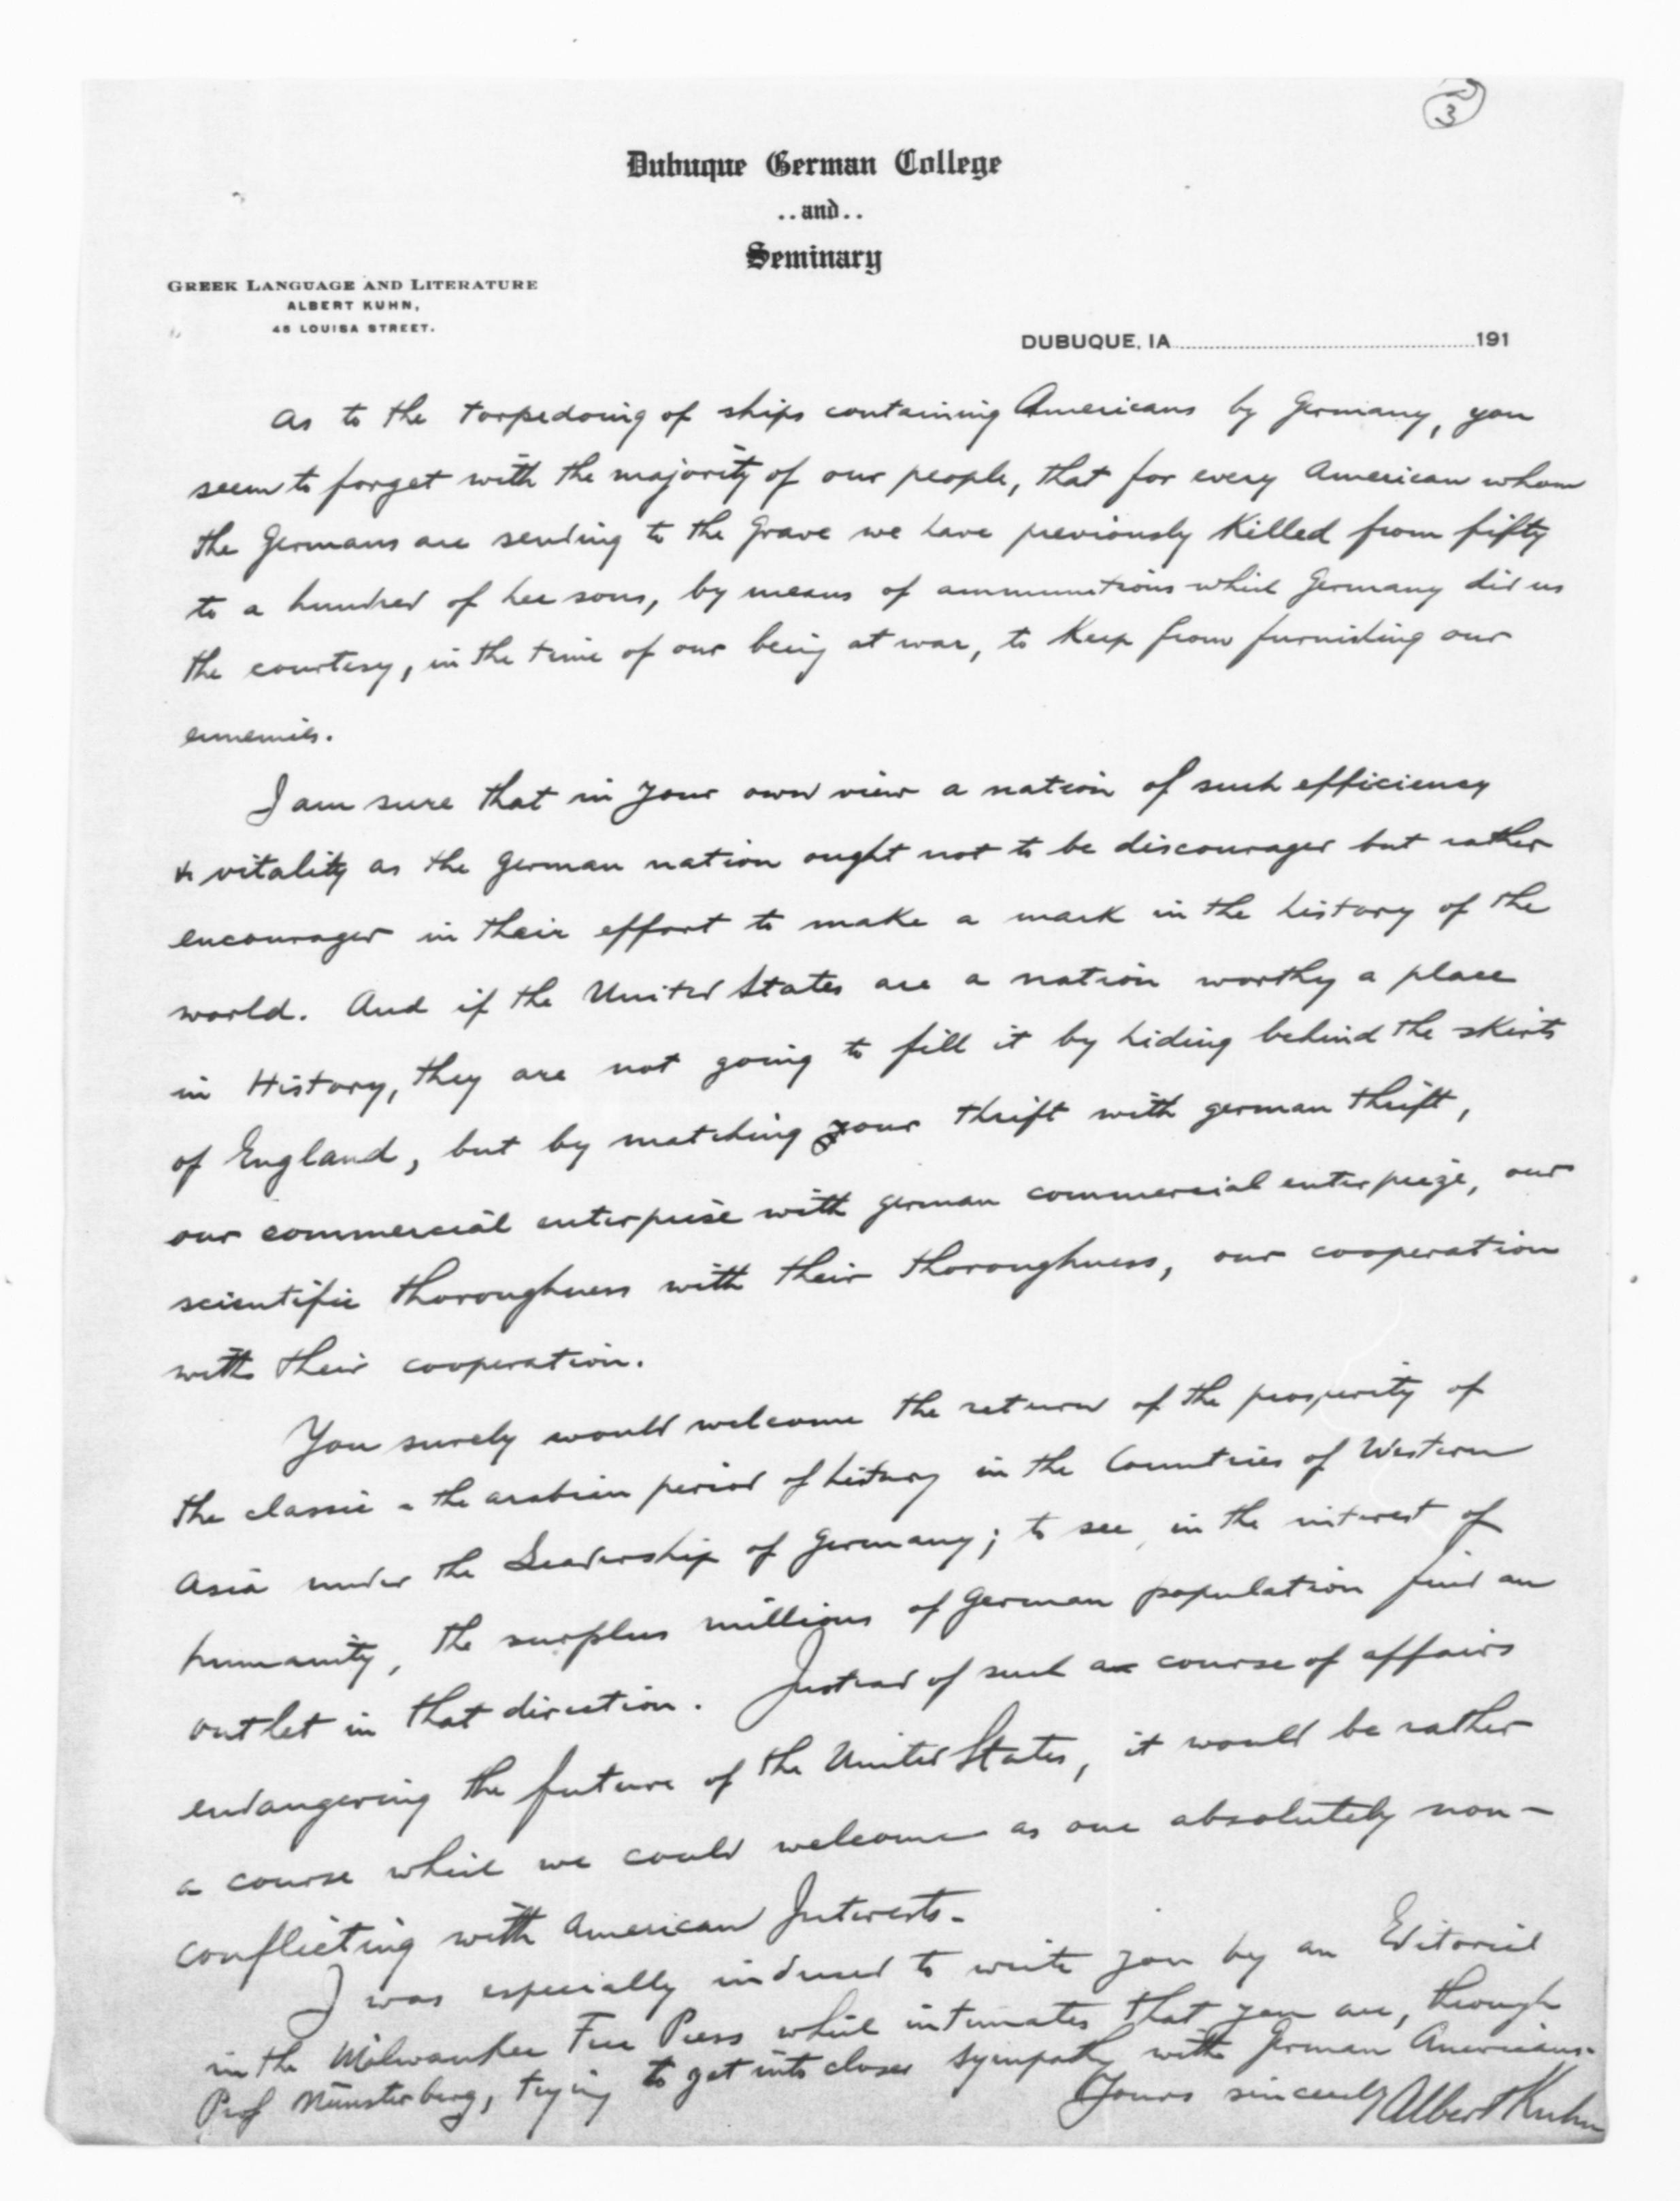 3
Dubuque German College
..and..
Seminary
GREEK LANGUAGE AND LITERATURE
ALBERT KUHN,
48 LOUISA STREET.
DUBUQUE, IA 191
As to the torpedoing of ships containing Americans by Germany, you
seem to forget with the majority of our people, that for every American whom
the Germans are sending to the grave we have previously killed from fifty
to a hundred of her sons, by means of ammunitions which Germany did us
the courtesy, in the time of our being at war, to keep from furnishing our
ennemies.
I am sure that in your own view a nation of such efficiency
& vitality as the German nation ought not to be discouraged but rather
encouraged in their effort to make a mark in the history of the
world. And if the United States are a nation worthy a place
in History, they are not going to fill it by hiding behind the skirts
of England, but by matching your thrift with german thrift,
our commercial enterprise with german commercial enterprize, our
scientific thoroughness with their thoroughness, our cooperation
with their cooperation.
You surely would welcome the return of the prosperity of
the classic - the arabian period of history in the Countries of Western
Asia under the Leadership of Germany; to see, in the interest of
humanity, the surplus millions of German population find an
outlet in that direction. Instead of such a course of affairs
endangering the future of the United States, it would be rather
a course which we could welcome as one absolutely non-
conflicting with American Interests.
I was especially induced to write you by an Editorial
in the Milwaukee Free Press which intimates that you are, through
Prof Münsterberg, trying to get into closer sympathy with German Americans.
Yours sincerely Albert Kuhn